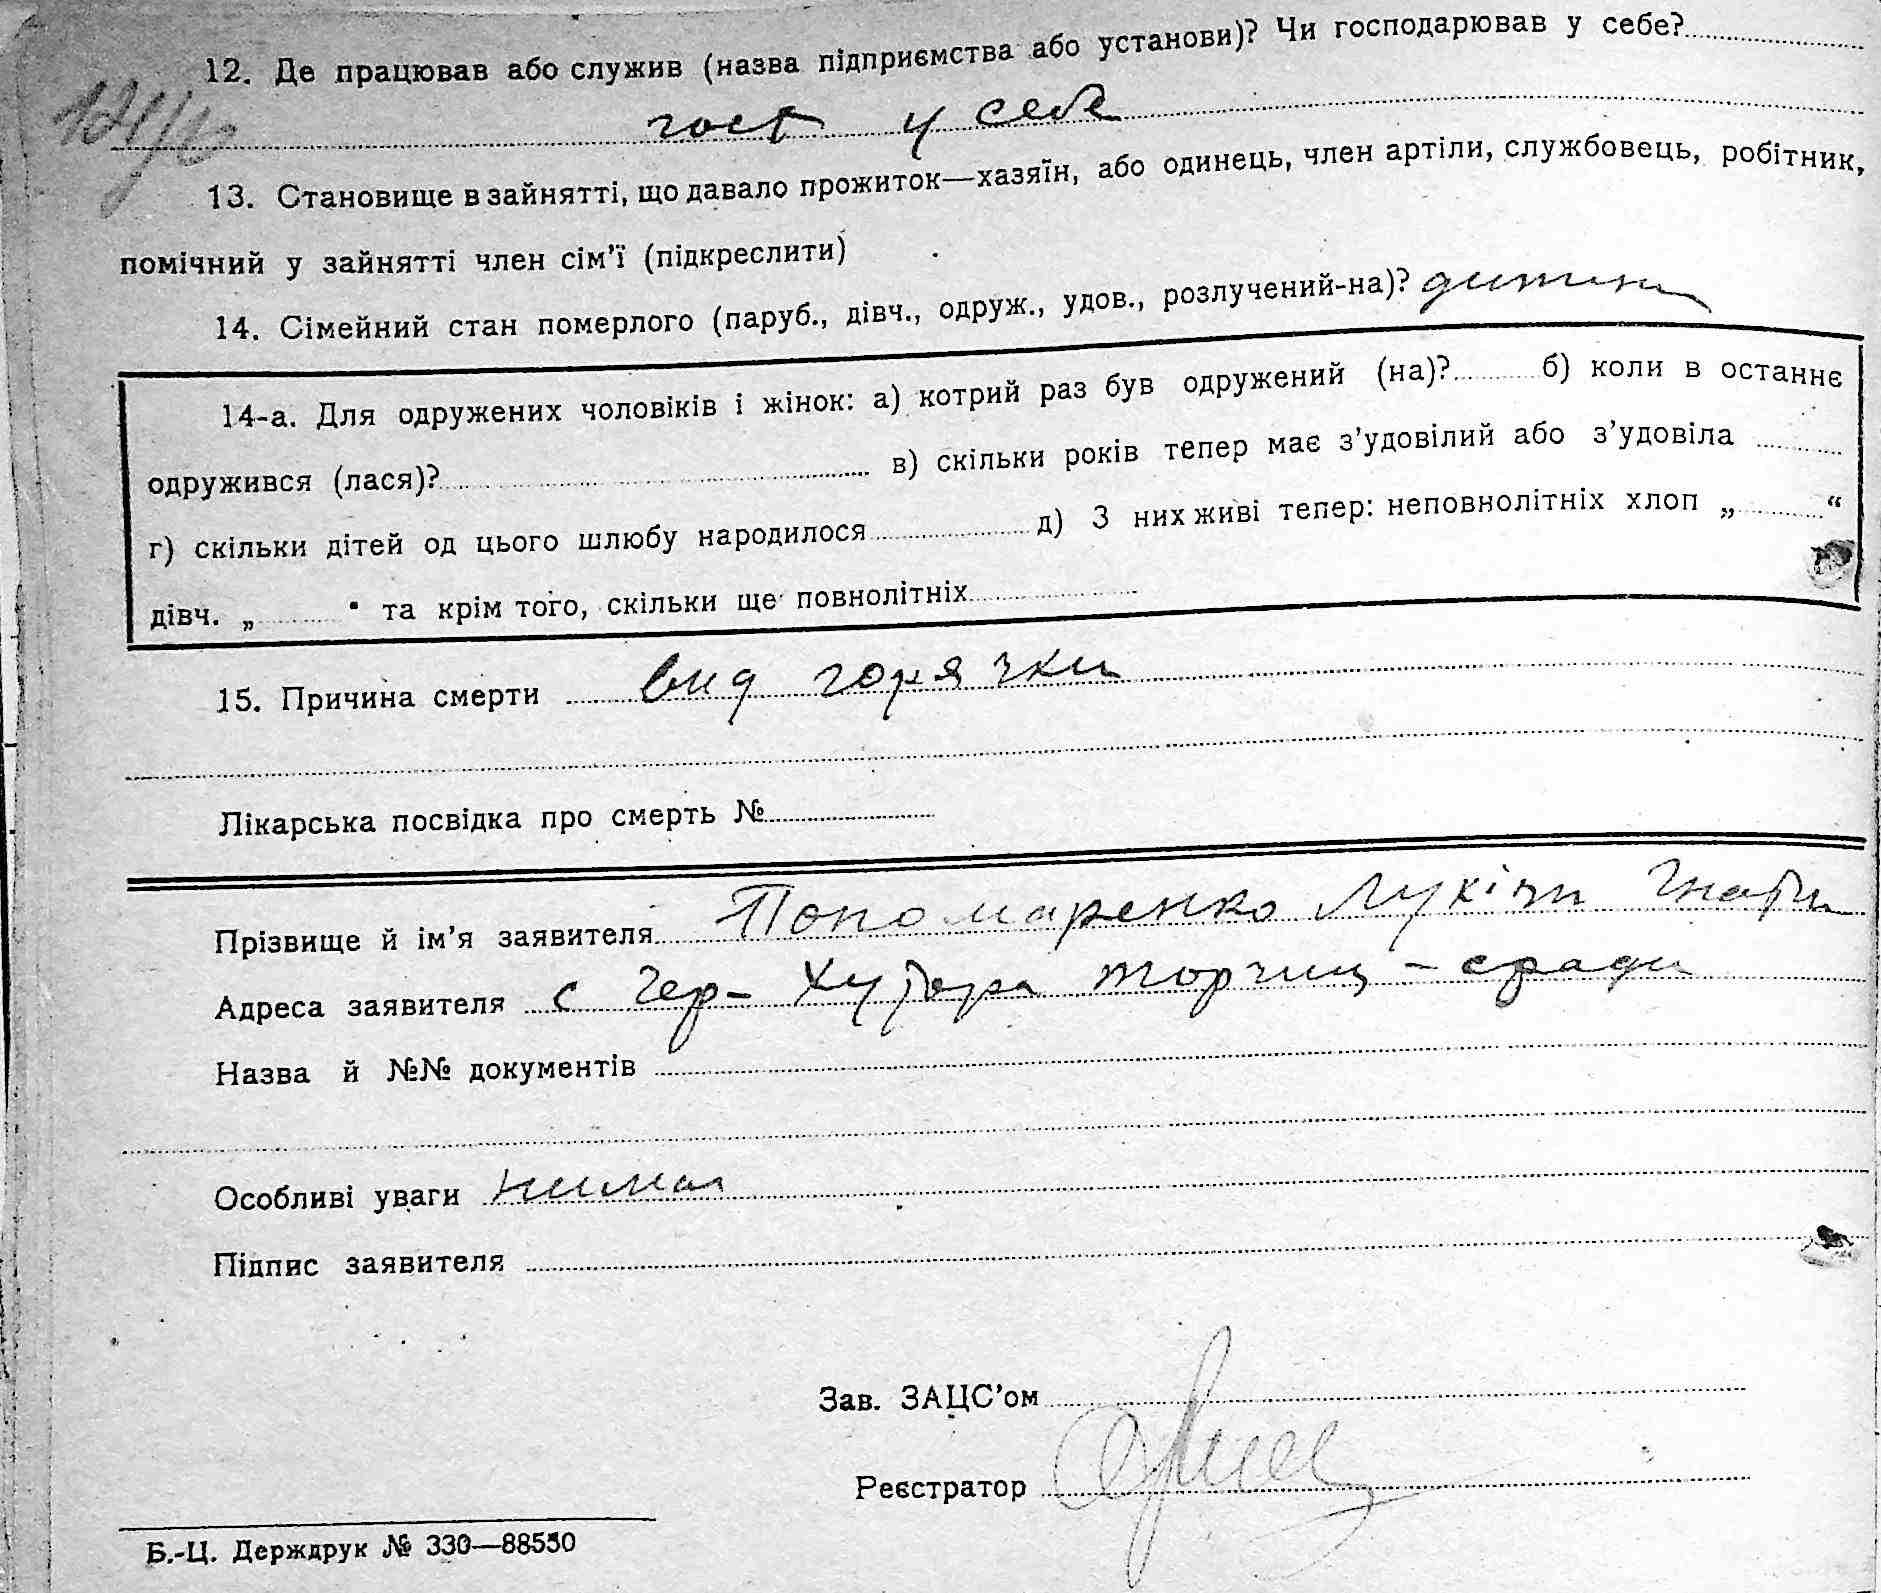 12. Де працював або служив (назва підприємства або установи)? Чи господарював у себе?
госп у себе
13. Становище в зайнятті, що давало прожиток—хазяїн, або одинець, член артіли, службовець, робітник,
помічний у зайнятті член сім'ї (підкреслити)
14. Сімейний стан померлого (паруб., дівч., одруж., удов., розлучений-на)? дитина
14-а. Для одружених чоловіків і жінок: а) котрий раз був одружений (на)? б) коли в останнє
одружився (лася)? в) скільки років тепер має з'удовілий або з'удовіла
г) скільки дітей од цього шлюбу народилося д) З них живі тепер: неповнолітніх хлоп „ “
дівч. „ " та крім того, скільки ще повнолітніх
15. Причина смерти вид горячки
Лікарська посвідка про смерть №
Прізвище й ім'я заявителя Пономаренко
Адреса заявителя с Чер- Хутора
Назва й №№ документів
Особливі уваги нима
Підпис заявителя
Зав. ЗАЦС'ом
Реєстратор
Б.-Ц. Держдрук № 330—88550